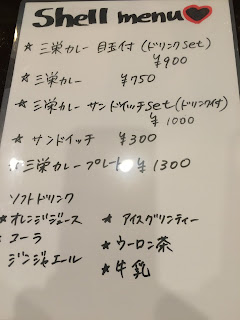 Shell menu
★ 三栄カレー 目玉付 (ドリンクset)
¥900
★ 三栄カレー ¥750
★ 三栄カレー サンドイッチset (ドリンク付)
¥1000
★ サンドイッチ ¥300
★ 三栄カレープレート ¥1300
ソフトドリンク
★オレンジジュース
コーラ
ジンジャエール
★ アイスグリンティー
★ ウーロン茶
★ 牛乳